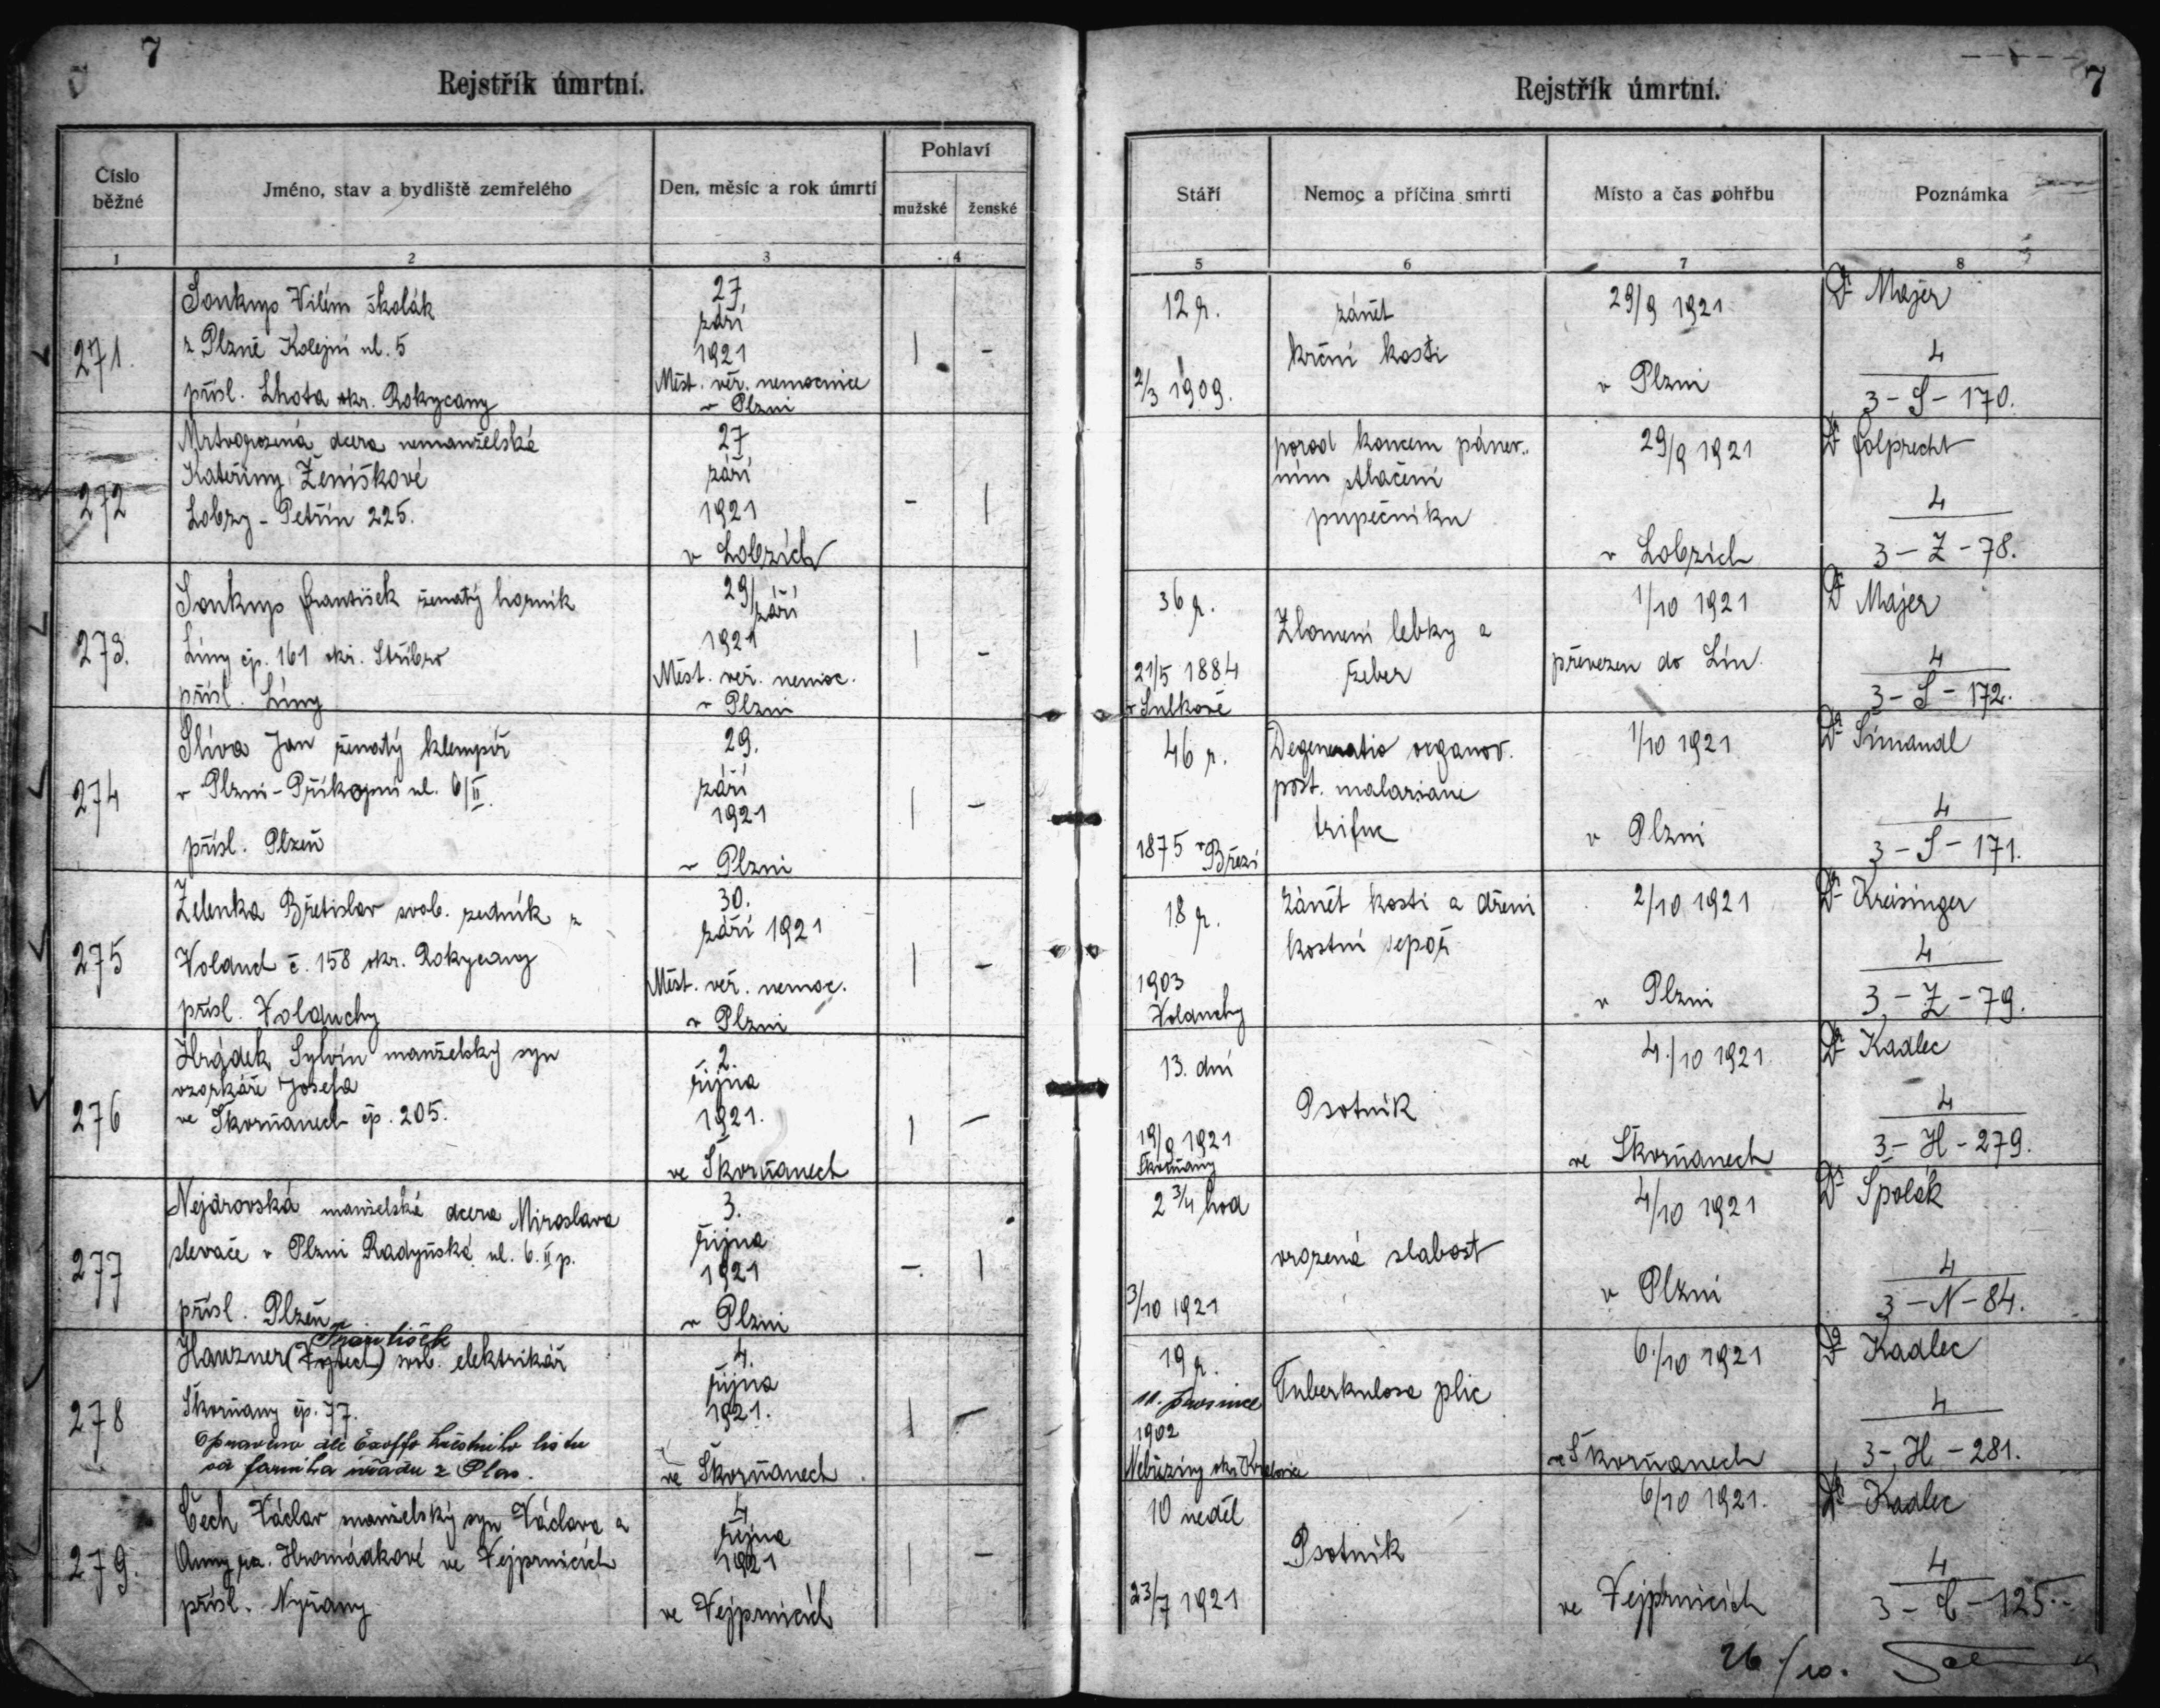 7
Rejstřík úmrtní.
Číslo běžné
Jméno, stav a bydliště zemřelého
Den, měsíc a rok úmrtí
Pohlaví
mužské
ženské
1
2
3
4
271.
Soukup Vilém školák
z Plzně Kolejní ul. 5
přísl. Lhota okr. Rokycany
27
září
1921
Měst. věř. nemocnice
v Plzni
| -
272
Mrtvorozená dcera nemanželská
Kateřiny Ženíškové
Lobzy - Petřín 225.
27
září
1921
v Lobzích
- |
273.
Soukup František ženatý horník
Líny čp. 161 okr. Stříbro
přísl. Líny
29/
září
1921
Měst. veř. nemoc.
v Plzni
| -
274
Slíva Jan ženatý klempíř
v Plzni - Příkopní ul. 6/II.
přísl. Plzeň
29.
září
1921
v Plzni
| -
275
Zelenka Břetislav svob. zedník z
Volduch č. 158 okr. Rokycany
přísl. Volduchy
30.
září 1921
Měst. veř. nemoc.
v Plzni
| -
276
Hrádek Sylvín manželský syn
vzorkáře Josefa
ve Skvrňanech čp. 205.
2.
října
1921.
ve Skvrňanech
| -
277
Nejdrovská manželská dcera Miroslava
slevače v Plzni Radyňská ul. 6. II p.
přísl. Plzeň
3.
října
1921
v Plzni
- |
278
František
Hauzner (Vojtěch) svob. elektrikář
Skvrňany čp. 77.
Opraveno dle Exoffo křestního listu
od farního úřadu z Plas.
4.
října
1921.
ve Skvrňanech
| -
279.
Čech Václav manželský syn Václava a
Anny roz. Hromádkové ve Vejprnicích
přísl. Nýřany
4
října
1921
ve Vejprnicích
| -
7
Rejstřík úmrtní.
Stáří
Nemoc a příčina smrti
Místo a čas pohřbu
Poznámka
5
6
7
8
12 r.
2/3 1909.
zánět
krční kosti
29/9 1921
v Plzni
Dr Majer
4
3 - S - 170.
porod koncem pánev.
ním stlačení
pupečníku
29/9 1921
v Lobzích
Dr Folprecht
4
3 - Z - 78.
36 r.
21/5 1884
v Sulkově
Zlomení lebky a
žeber
1/10 1921
převezen do Lín.
Dr Majer
4
3 - S - 172.
46 r.
1875 v Březí
Degeneratio organov.
post. malariane
1/10 1921
v Plzni
Dr Šimandl
4
3 - S - 171.
18 r.
1903
Volduchy
Zánět kosti a dřeni
kostní
2/10 1921
v Plzni
Dr Kreisinger
4
3 - Z - 79.
13. dní
19/9 1921
Skvrňany
Psotník
4./10 1921.
ve Skvrňanech
Dr Kadlec
4
3 - H - 279.
2 3/4 hod
3/10 1921
vrozená slabost
4/10 1921
v Plzni
Dr Špolák
4
3 - N - 84.
19 r.
11. prosince
1902
Nebřeziny okr. Kralovice
Tuberkulosa plic
6./10 1921
ve Skvrňanech
Dr Kadlec
4
3 - H - 281.
10 neděl
23/7 1921
Psotník
6/10 1921.
ve Vejprnicích
Dr Kadlec
4
3 - Č - 125.
26/10.